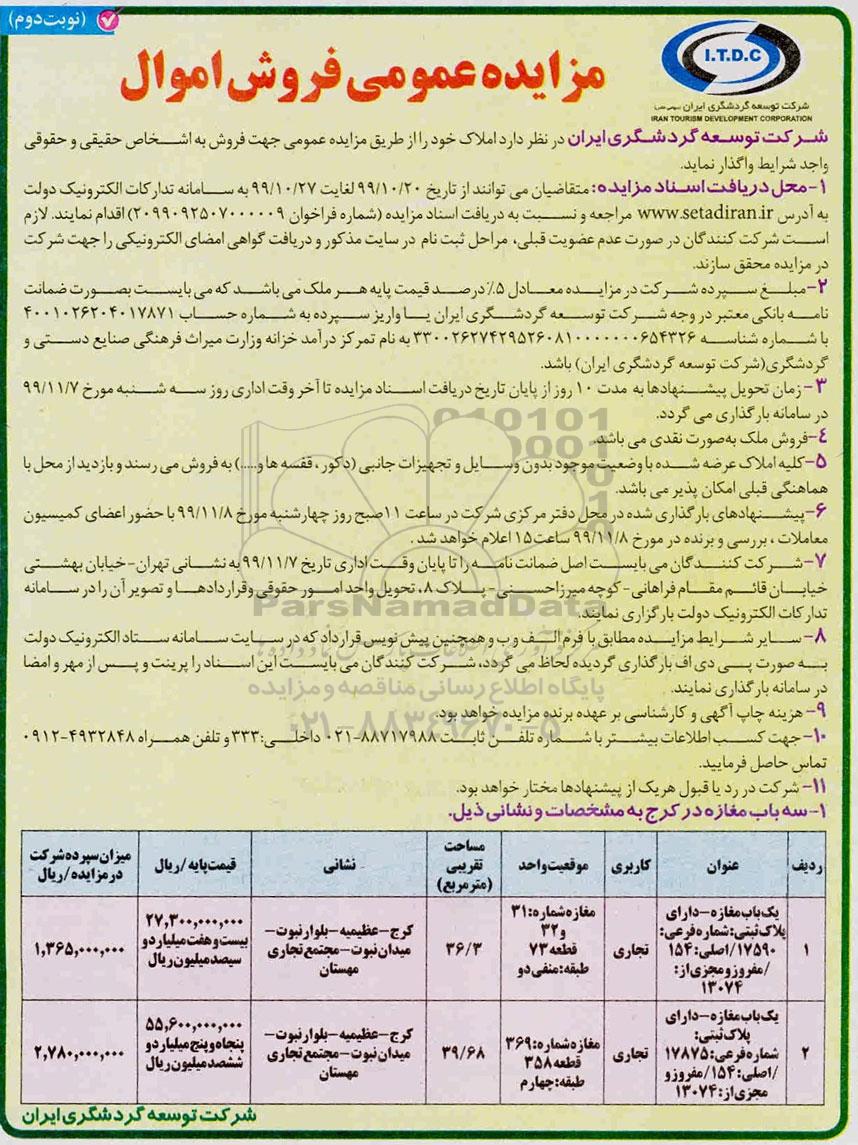 (نوبت دوم)
I.T.D.C
شرکت توسعه گردشگری ایران
IRAN TOURISM DEVELOPMENT CORPORATION
مزایده عمومی فروش اموال
شرکت توسعه گردشگری ایران در نظر دارد املاک خود را از طریق مزایده عمومی جهت فروش به اشخاص حقیقی و حقوقی
واجد شرایط واگذار نماید.
۱-محل دریافت اسناد مزایده: متقاضیان می توانند از تاریخ ۹۹/۱۰/۲۰ لغایت ۹۹/۱۰/۲۷ به سامانه تدارکات الکترونیک دولت
به آدرس www.setadiran.ir مراجعه و نسبت به دریافت اسناد مزایده (شماره فراخوان ۲۰۹۹۰۹۲۵۰۷۰۰۰۰۰۹) اقدام نمایند. لازم
است شرکت کنندگان در صورت عدم عضویت قبلی، مراحل ثبت نام در سایت مذکور و دریافت گواهی امضای الکترونیکی را جهت شرکت
در مزایده محقق سازند.
۲-مبلغ سپرده شرکت در مزایده معادل ۵٪ درصد قیمت پایه هر ملک می باشد که می بایست بصورت ضمانت
نامه بانکی معتبر در وجه شرکت توسعه گردشگری ایران یا واریز سپرده به شماره حساب ۴۰۰۱۰۲۶۲۰۴۰۱۷۸۷۱
با شماره شناسه ۳۳۰۰۲۶۲۷۴۲۹۵۲۶۰۸۱۰۰۰۰۰۰۰۶۵۴۳۲۶ به نام تمرکز درآمد خزانه وزارت میراث فرهنگی صنایع دستی و
گردشگری(شرکت توسعه گردشگری ایران) باشد.
۳- زمان تحویل پیشنهادها به مدت ۱۰ روز از پایان تاریخ دریافت اسناد مزایده تا آخر وقت اداری روز سه شنبه مورخ ۹۹/۱۱/۷
در سامانه بارگذاری می گردد.
۴-فروش ملک به‌صورت نقدی می باشد.
۵-کلیه املاک عرضه شده با وضعیت موجود بدون وسایل و تجهیزات جانبی (دکور، قفسه ها و.....) به فروش می رسند و بازدید از محل با
هماهنگی قبلی امکان پذیر می باشد.
۶-پیشنهادهای بارگذاری شده در محل دفتر مرکزی شرکت در ساعت ۱۱صبح روز چهارشنبه مورخ ۹۹/۱۱/۸ با حضور اعضای کمیسیون
معاملات ، بررسی و برنده در مورخ ۹۹/۱۱/۸ ساعت۱۵ اعلام خواهد شد .
۷-شرکت کنندگان می بایست اصل ضمانت نامه را تا پایان وقت اداری تاریخ ۹۹/۱۱/۷ به نشانی تهران-خیابان بهشتی
خیابان قائم مقام فراهانی-کوچه میرزاحسنی- پلاک ۸، تحویل واحد امور حقوقی وقراردادها و تصویر آن را در سامانه
تدارکات الکترونیک دولت بارگزاری نمایند.
۸- سایر شرایط مزایده مطابق با فرم الف و ب و همچنین پیش نویس قرارداد که در سایت سامانه ستاد الکترونیک دولت
به صورت پی دی اف بارگذاری گردیده لحاظ می گردد، شرکت کنندگان می بایست این اسناد را پرینت و پس از مهر و امضا
در سامانه بارگذاری نمایند.
۹- هزینه چاپ آگهی و کارشناسی بر عهده برنده مزایده خواهد بود.
۱۰- جهت کسب اطلاعات بیشتر با شماره تلفن ثابت ۸۸۷۱۷۹۸۸-۰۲۱ داخلی:۳۳۳ و تلفن همراه ۴۹۳۲۸۴۸-۰۹۱۲
تماس حاصل فرمایید.
۱۱- شرکت در رد یا قبول هریک از پیشنهادها مختار خواهد بود.
۱-سه باب مغازه در کرج به مشخصات و نشانی ذیل.
ردیف | عنوان | کاربری | موقعیت واحد | مساحت تقریبی (مترمربع) | نشانی | قیمت پایه /ریال | میزان سپرده شرکت در مزایده/ریال
۱ | یک باب مغازه-دارای پلاک ثبتی:شماره فرعی: ۱۷۵۹۰/اصلی:۱۵۴ /مفروز و مجزی از: ۱۳۰۷۴ | تجاری | مغازه شماره:۳۱ و۳۲ قطعه ۷۳ طبقه:منفی دو | ۳۶/۳ | کرج-عظیمیه-بلوار نبوت- میدان نبوت-مجتمع تجاری مهستان | ۲۷,۳۰۰,۰۰۰,۰۰۰ بیست و هفت میلیارد و سیصد میلیون ریال | ۱,۳۶۵,۰۰۰,۰۰۰
۲ | یک باب مغازه-دارای پلاک ثبتی: شماره فرعی:۱۷۸۷۵ /اصلی:۱۵۴/مفروز و مجزی از:۱۳۰۷۴ | تجاری | مغازه شماره:۳۶۹ قطعه ۳۵۸ طبقه:چهارم | ۳۹/۶۸ | کرج-عظیمیه-بلوار نبوت- میدان نبوت-مجتمع تجاری مهستان | ۵۵,۶۰۰,۰۰۰,۰۰۰ پنجاه و پنج میلیارد و ششصد میلیون ریال | ۲,۷۸۰,۰۰۰,۰۰۰
شرکت توسعه گردشگری ایران
ParsNamadData
پایگاه اطلاع رسانی مناقصه و مزایده